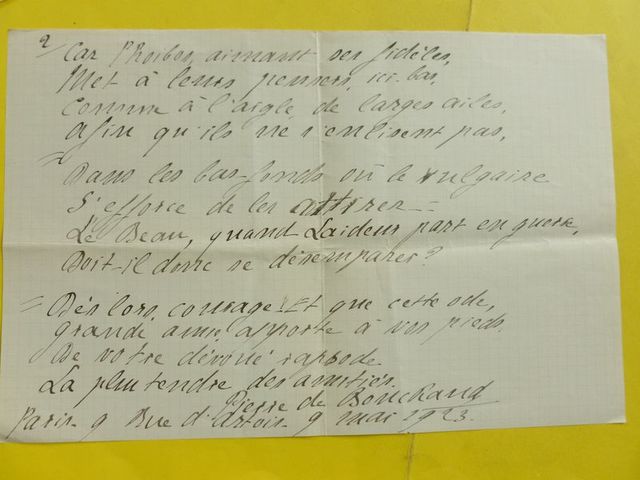 2
Car Phoibos, aimant ses fidèles,
Met à leurs pensers, ici-bas,
Comme à l'aigle, de larges ailes,
Afin qu'ils ne s'enlisent pas,
Dans les bas-fonds où le vulgaire
S'efforce de les attirer –
Le Beau, quand Laideur part en guerre,
Doit-il donc se désemparer?
Dès lors, courage! Et que cette ode,
grande amie, apporte à vos pieds
De votre dévoué rapsode
La plus tendre des amitiés.
Pierre de
Paris 9 Rue d'Artois 9 mai 1923.